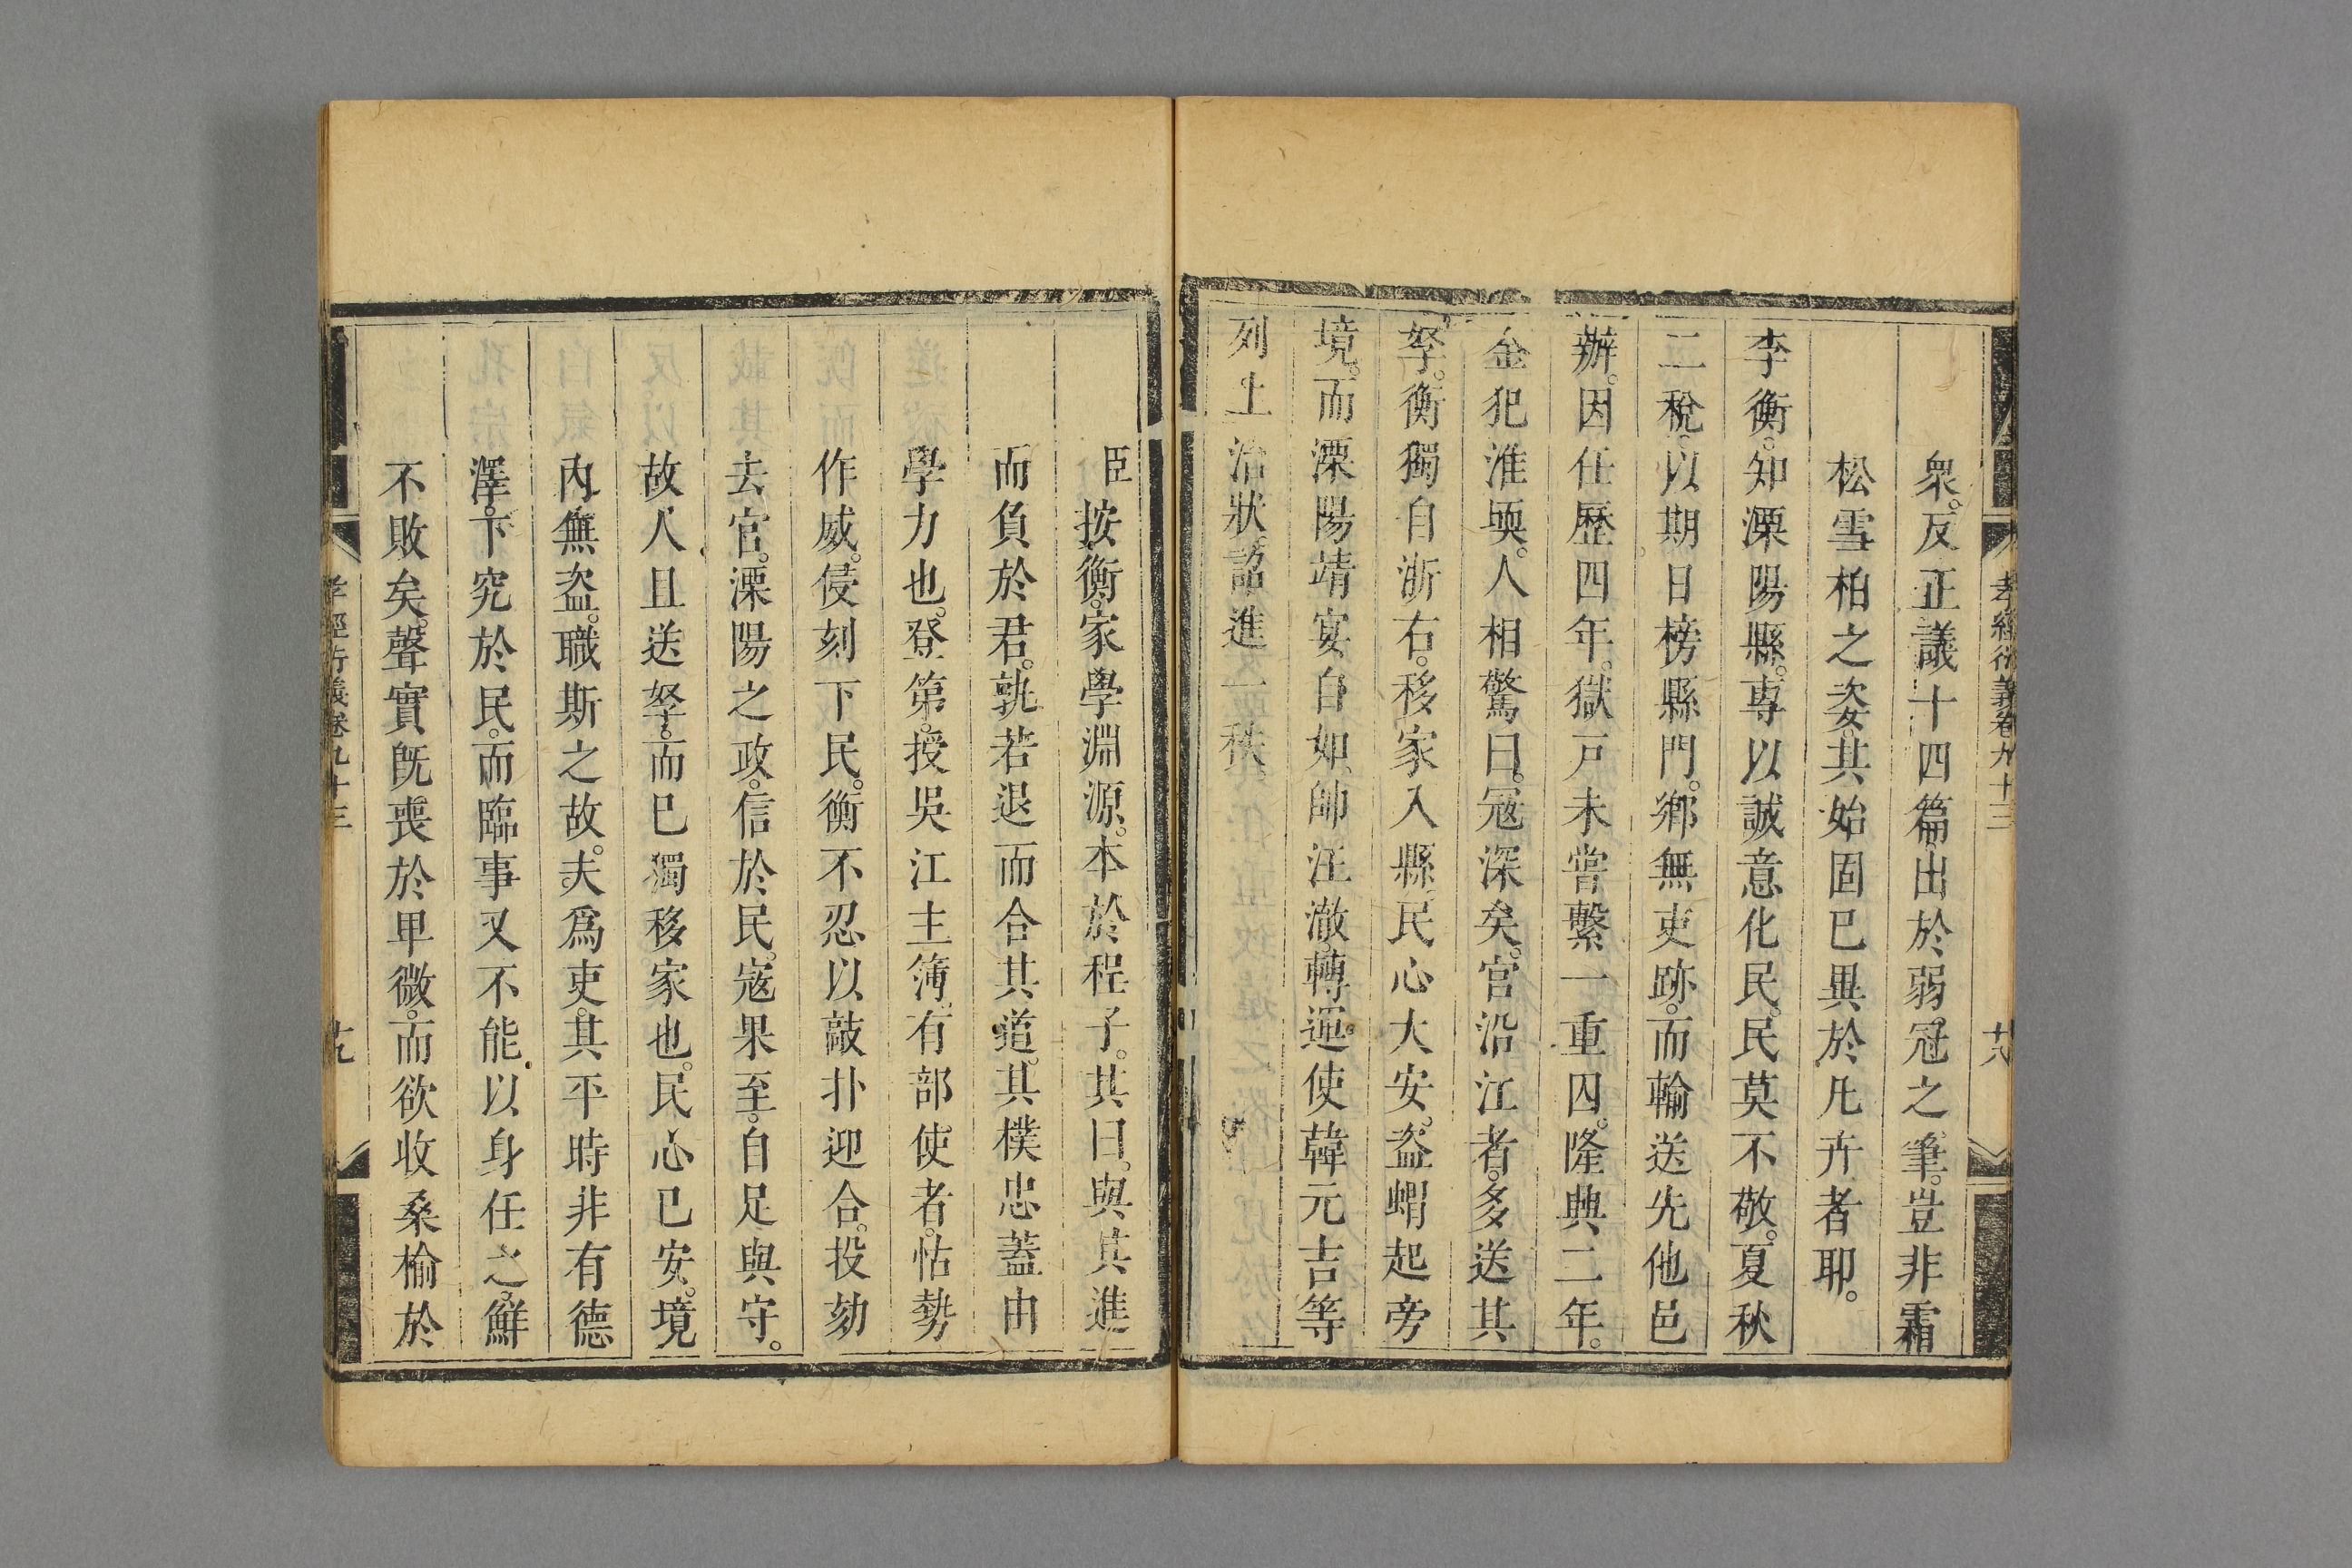 孝經衍義卷九十三
衆。反正議十四篇。出於弱冠之筆。豈非霜
松雪柏之姿。其始固已異於凡卉者耶。
李衡。知溧陽縣。專以誠意化民。民莫不敬。夏秋
二稅。以期日榜縣門。鄉無吏跡。而輸送先他邑
辦。因任歷四年。獄戸未嘗繫一重囚。隆興二年。
金犯淮堧。人相驚曰。冦深矣。官沿江者。多送其
孥。衡獨自浙右。移家入縣。民心大安。盜蝟起旁
境。而溧陽靖宴自如。帥汪澈。轉運使韓元吉等
列上治狀。詔進一秩。
臣按。衡。家學淵源。本於程子。其曰。與其進
而負於君。孰若退而合其道。其樸忠蓋由
學力也。登第。授吳江主簿。有部使者。怙勢
作威。侵刻下民。衡不忍以敲扑迎合。投劾
去官。溧陽之政。信於民。寇果至。自足與守。
故人且送孥。而已獨移家也。民心已安。境
內無盜。職斯之故。夫爲吏。其平時非有德
澤。下究於民。而臨事又不能以身任之。鮮
不敗矣。聲實旣喪於甲微。而欲收桑榆於
孝經衍義卷九十三